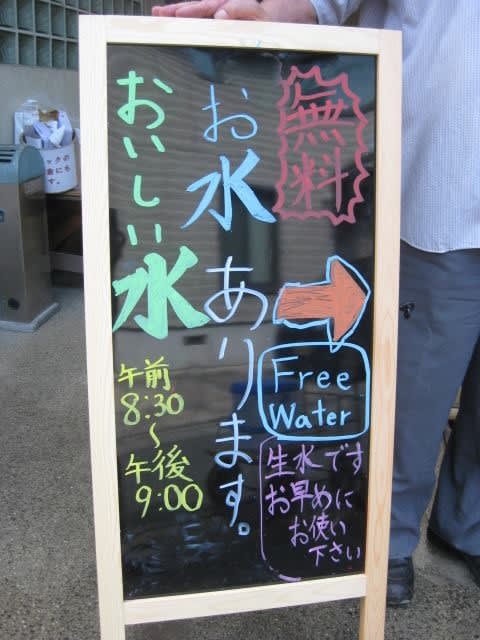 無料
お水あります。
おいしい水
午前
8:30
〜
午後
9:00
Free
Water
生水です
お早めに
お使い
下さい